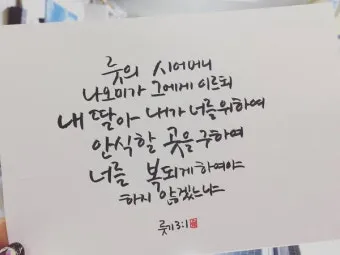 룻의 시어머니
나오미가 그에게 이르되
내 딸아 내가 너를 위하여
안식할 곳을 구하여
너를 복되게 하여야
하지 않겠느냐
룻기3:1